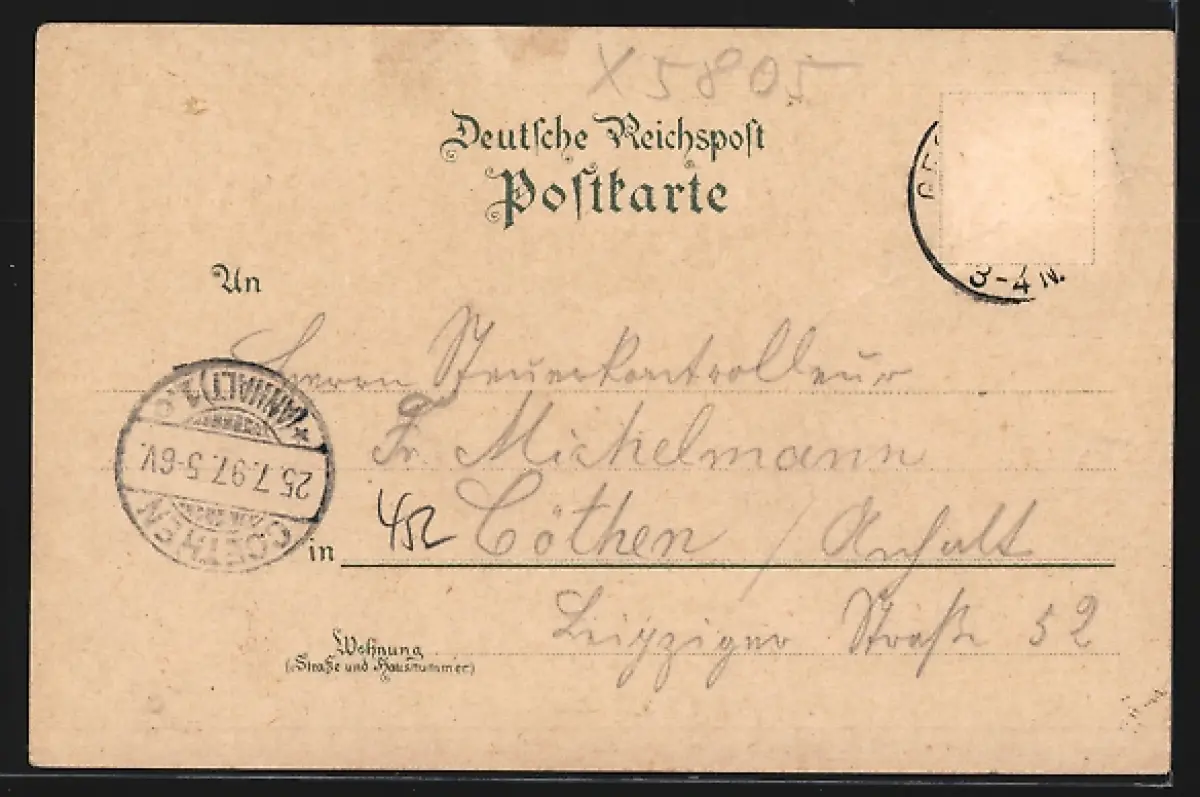 X5805
Deutsche Reichspost
Postkarte
3-4 N.
An
Herrn Steuerkontrolleur
Fr. Michelmann
in Cöthen / Anhalt
Leipziger Straße 52
Wohnung
(Straße und Hausnummer)
COETHEN
25.7.97. 5-6V.
(ANHALT)